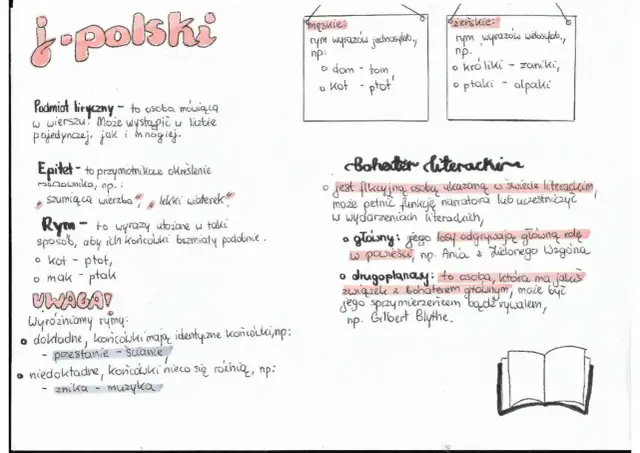 j. polski
Podmiot liryczny – to osoba mówiąca
w wierszu. Może wystąpić w liczbie
pojedynczej, jak i mnogiej.
Epitet – to przymiotnikowe określenie
rzeczownika, np.:
„szumiąca wierzba”, „lekki wiaterek”
Rym – to wyrazy ułożone w taki
sposób, aby ich końcówki brzmiały podobnie.
o kot – płot,
o mak – ptak
UWAGA!
Wyróżniamy rymy:
o dokładne, końcówki mają identyczne końcówki, np:
- przestanie – ścianie,
o niedokładne, końcówki nieco się różnią, np:
- znika – muzyka
męskie:
rym wyrazów jednosylab.,
np:
o dom – tom
o kot – płot
żeńskie:
rym wyrazów wielosylab.,
np.
o króliki – zaniki,
o ptaki – alpaki
Bohater literacki
o jest fikcyjną osobą ukazaną w świecie literackim,
może pełnić funkcję narratora lub uczestniczyć
w wydarzeniach literackich,
o główny: jego losy odgrywają główną rolę
w powieści, np. Ania z Zielonego Wzgórza
o drugoplanowy: to osoba, która ma jakiś
związek z bohaterem głównym, może być
jego sprzymierzeńcem bądź rywalem,
np. Gilbert Blythe.